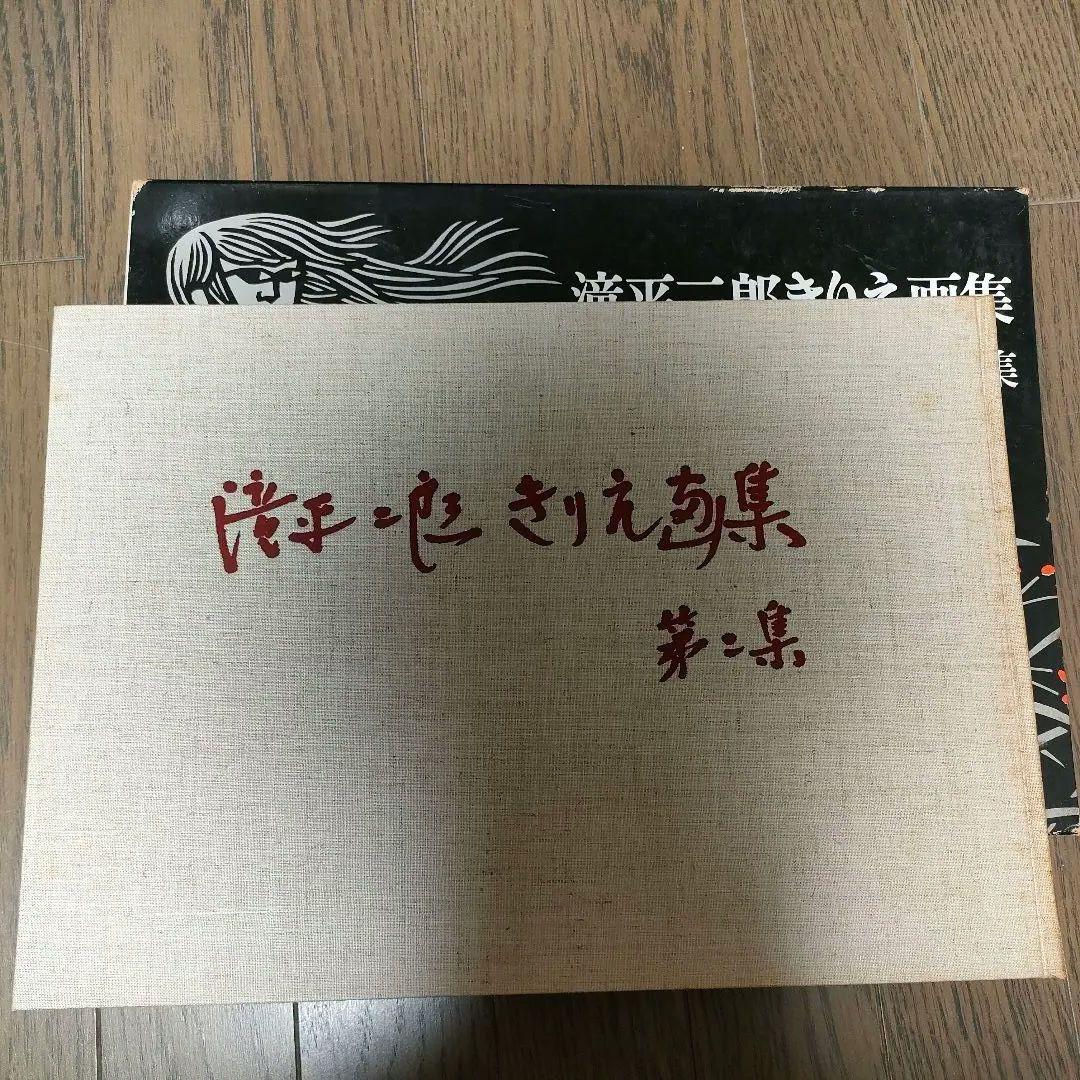 滝平二郎きりえ画集
集
滝平二郎きりえ画集
第二集